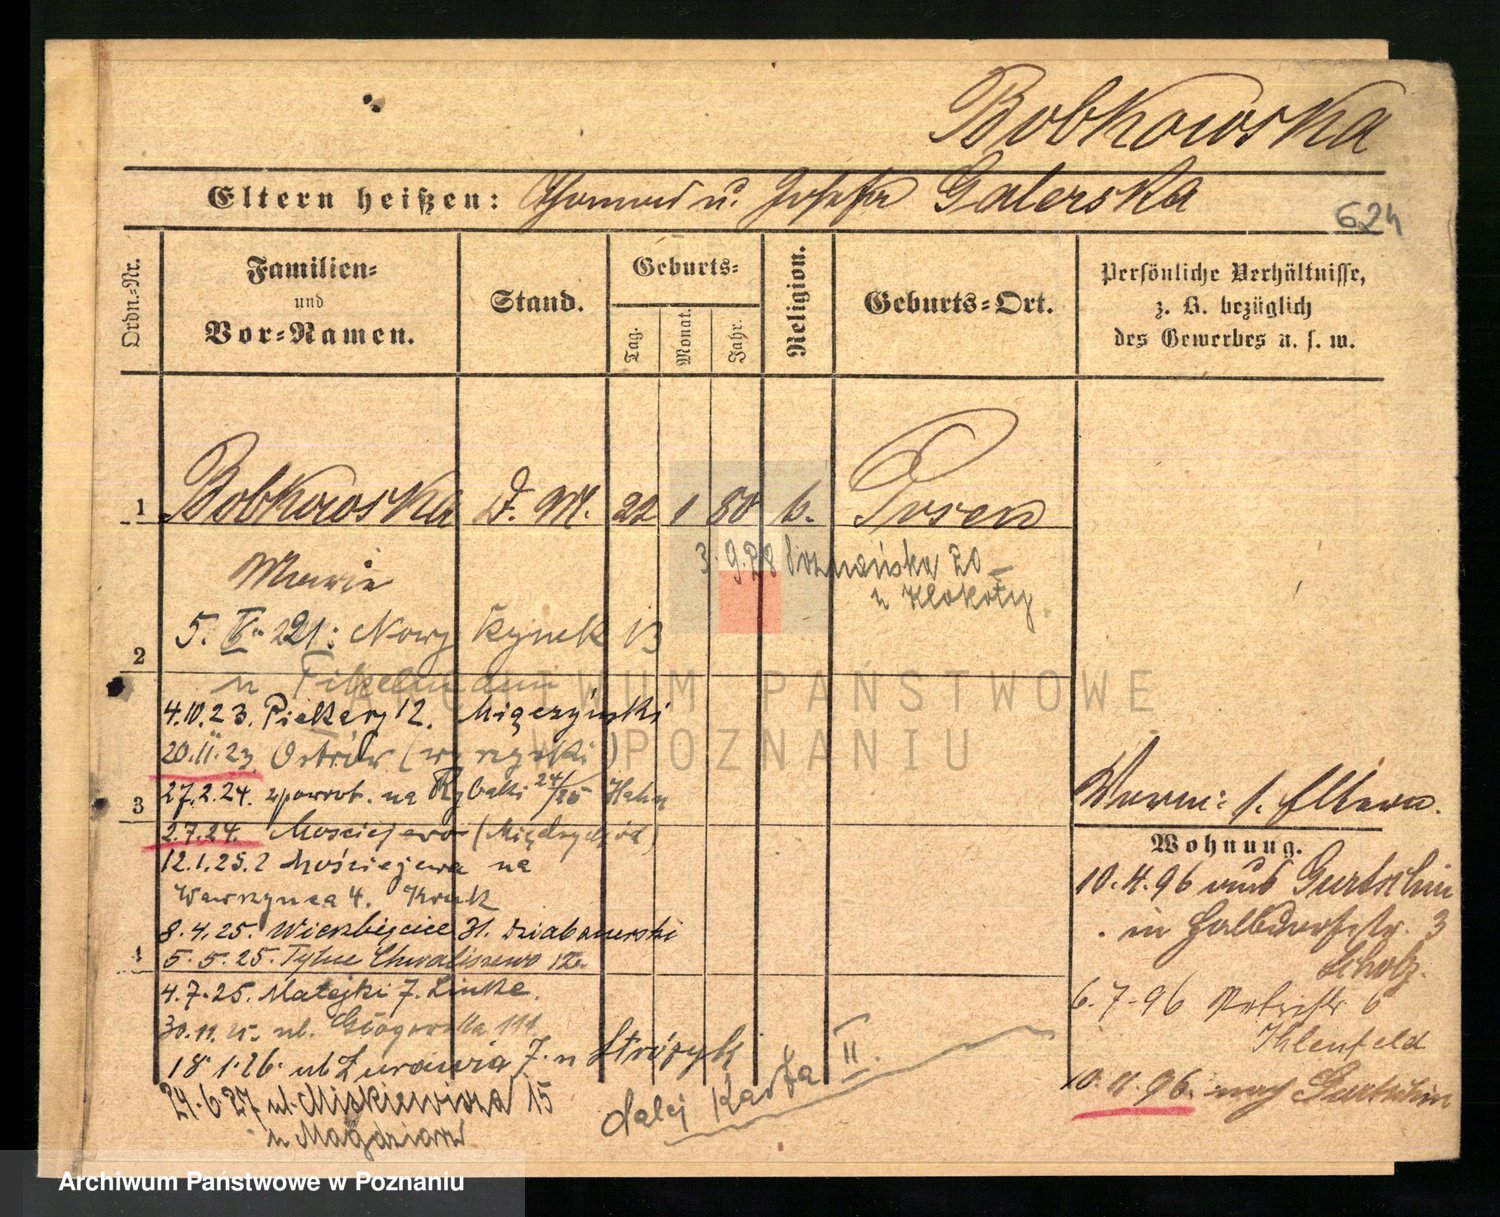 Bobkowska
Eltern heißen: Thomas u. Josefa Galerska
624
Ordn.-Nr.
Familien-
und
Vor-Namen.
Stand.
Geburts-
Tag.
Monat.
Jahr.
Religion.
Geburts-Ort.
Persönliche Verhältnisse,
z. B. bezüglich
des Gewerbes u. s. w.
1 Bobkowska D. M. 22 1 80 k. Posen
Marie
3.9.28 Poznańska 20
u
5. 21: Nowy Rynek 13
2
u Fikelmann
4.10.23. Piekary 12.
20.II.23. Ostrów (wyrzyski)
27.2.24. zpowrot. na Rybaki 24/25 Hahn
3
2.7.24. Mościejewo (Międzychód)
12.1.25. z Mościejewa na
Wawrzyńca 4. Kruk
8.4.25. Wierzbięcice 31.
4
5.5.25. Tylne Chwaliszewo
4.7.25. Matejki 7. Linke.
30.11.25. ul. Głogowska 111
18.1.26. ul Żurawia 7. u Stróżyk
29.6.27 ul. Mickiewicza 15
u Magdziarz
dalej Karta II.
Verm: s. Eltern.
Wohnung.
10.4.96 aus Gurtschin
in Halbdorfstr. 3
Scholz.
6.7.96 Petristr 6
Ihlenfeld
10.11.96. nach Gurtschin
ARCHIWUM PAŃSTWOWE
W POZNANIU
Archiwum Państwowe w Poznaniu